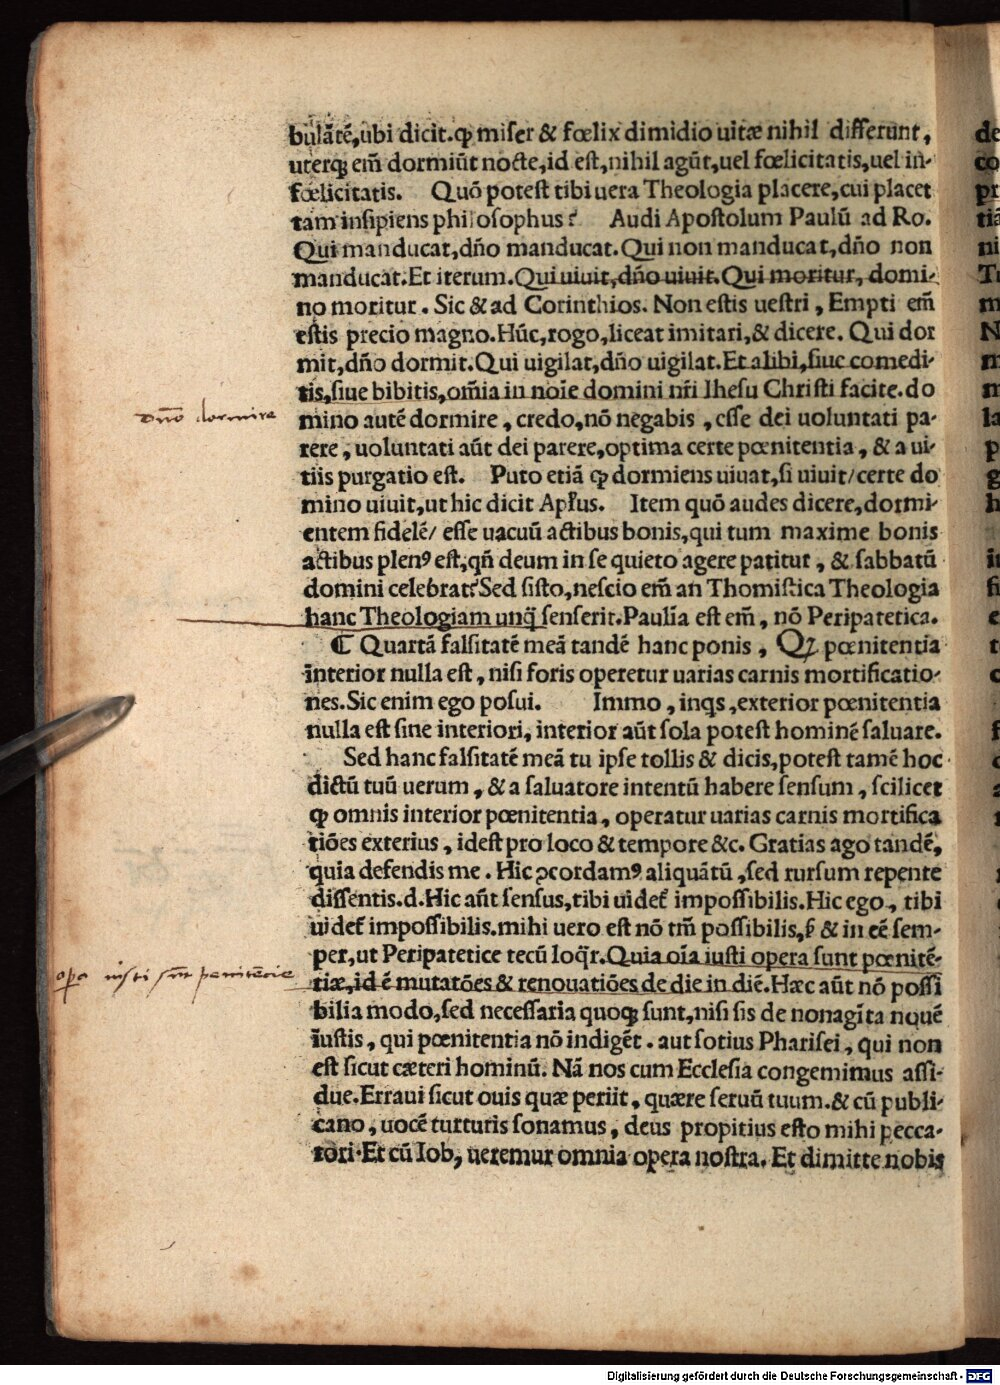 bulãtẽ, ubi dicit. ꝙ miser & fœlix dimidio uitæ nihil differunt,
uterqꝫ em̃ dormiũt nocte, id est, nihil agũt, uel fœlicitatis, uel in-
fœlicitatis. Quõ potest tibi uera Theologia placere, cui placet
tam insipiens philosophus? Audi Apostolum Paulũ ad Ro.
Qui manducat, dño manducat. Qui non manducat, dño non
manducat. Et iterum. Qui uiuit, dño uiuit. Qui moritur, domi-
no moritur. Sic & ad Corinthios. Non estis uestri, Empti em̃
estis precio magno. Hũc, rogo, liceat imitari, & dicere. Qui dor
mit, dño dormit. Qui uigilat, dño uigilat. Et alibi, siue comedi-
tis, siue bibitis, om̃ia in noĩe domini nr̃i Ihesu Christi facite. do
dño dormire
mino autẽ dormire, credo, nõ negabis, esse dei uoluntati pa-
rere, uoluntati aũt dei parere, optima certe pœnitentia, & a ui-
tiis purgatio est. Puto etiã ꝙ dormiens uiuat, si uiuit/ certe do
mino uiuit, ut hic dicit Apl̃us. Item quõ audes dicere, dormi-
entem fidelẽ/ esse uacuũ actibus bonis, qui tum maxime bonis
actibus plenꝰ est, qñ deum in se quieto agere patitur, & sabbatũ
domini celebrat? Sed sisto, nescio em̃ an Thomistica Theologia
hanc Theologiam unq̃ senserit. Paulĩa est em̃, nõ Peripatetica.
¶ Quartã falsitatẽ meã tandẽ hanc ponis, Qꝫ pœnitentia
interior nulla est, nisi foris operetur uarias carnis mortificatio-
nes. Sic enim ego posui. Immo, inqs, exterior pœnitentia
nulla est sine interiori, interior aũt sola potest hominẽ saluare.
Sed hanc falsitatẽ meã tu ipse tollis & dicis, potest tamẽ hoc
dictũ tuũ uerum, & a saluatore intentũ habere sensum, scilicet
ꝙ omnis interior pœnitentia, operatur uarias carnis mortifica
tiões exterius, idest pro loco & tempore &c. Gratias ago tandẽ,
quia defendis me. Hic ↄcordamꝰ aliquãtũ, sed rursum repente
dissentis. d. Hic aũt sensus, tibi uidet̃ impossibilis. Hic ego, tibi
uidet̃ impossibilis. mihi uero est nõ tm̃ possibilis, ꝭ & in eẽ sem-
per, ut Peripatetice tecũ loq̃r. Quia oĩa iusti opera sunt pœnitẽ-
opa iusti sũt penitẽcie
tiæ, id ẽ mutatões & renouatiões de die in diẽ. Hæc aũt nõ possi
bilia modo, sed necessaria quoqꝫ sunt, nisi sis de nonagĩta nouẽ
iustis, qui pœnitentia nõ indigẽt. aut sotius Pharisei, qui non
est sicut cæteri hominũ. Nã nos cum Ecclesia congemimus assi-
due. Erraui sicut ouis quæ periit, quære seruũ tuum. & cũ publi-
cano, uocẽ turturis sonamus, deus propitius esto mihi pecca-
tori. Et cũ Iob, ueremur omnia opera nostra. Et dimitte nobis
de
co
Digitalisierung gefördert durch die Deutsche Forschungsgemeinschaft - DFG